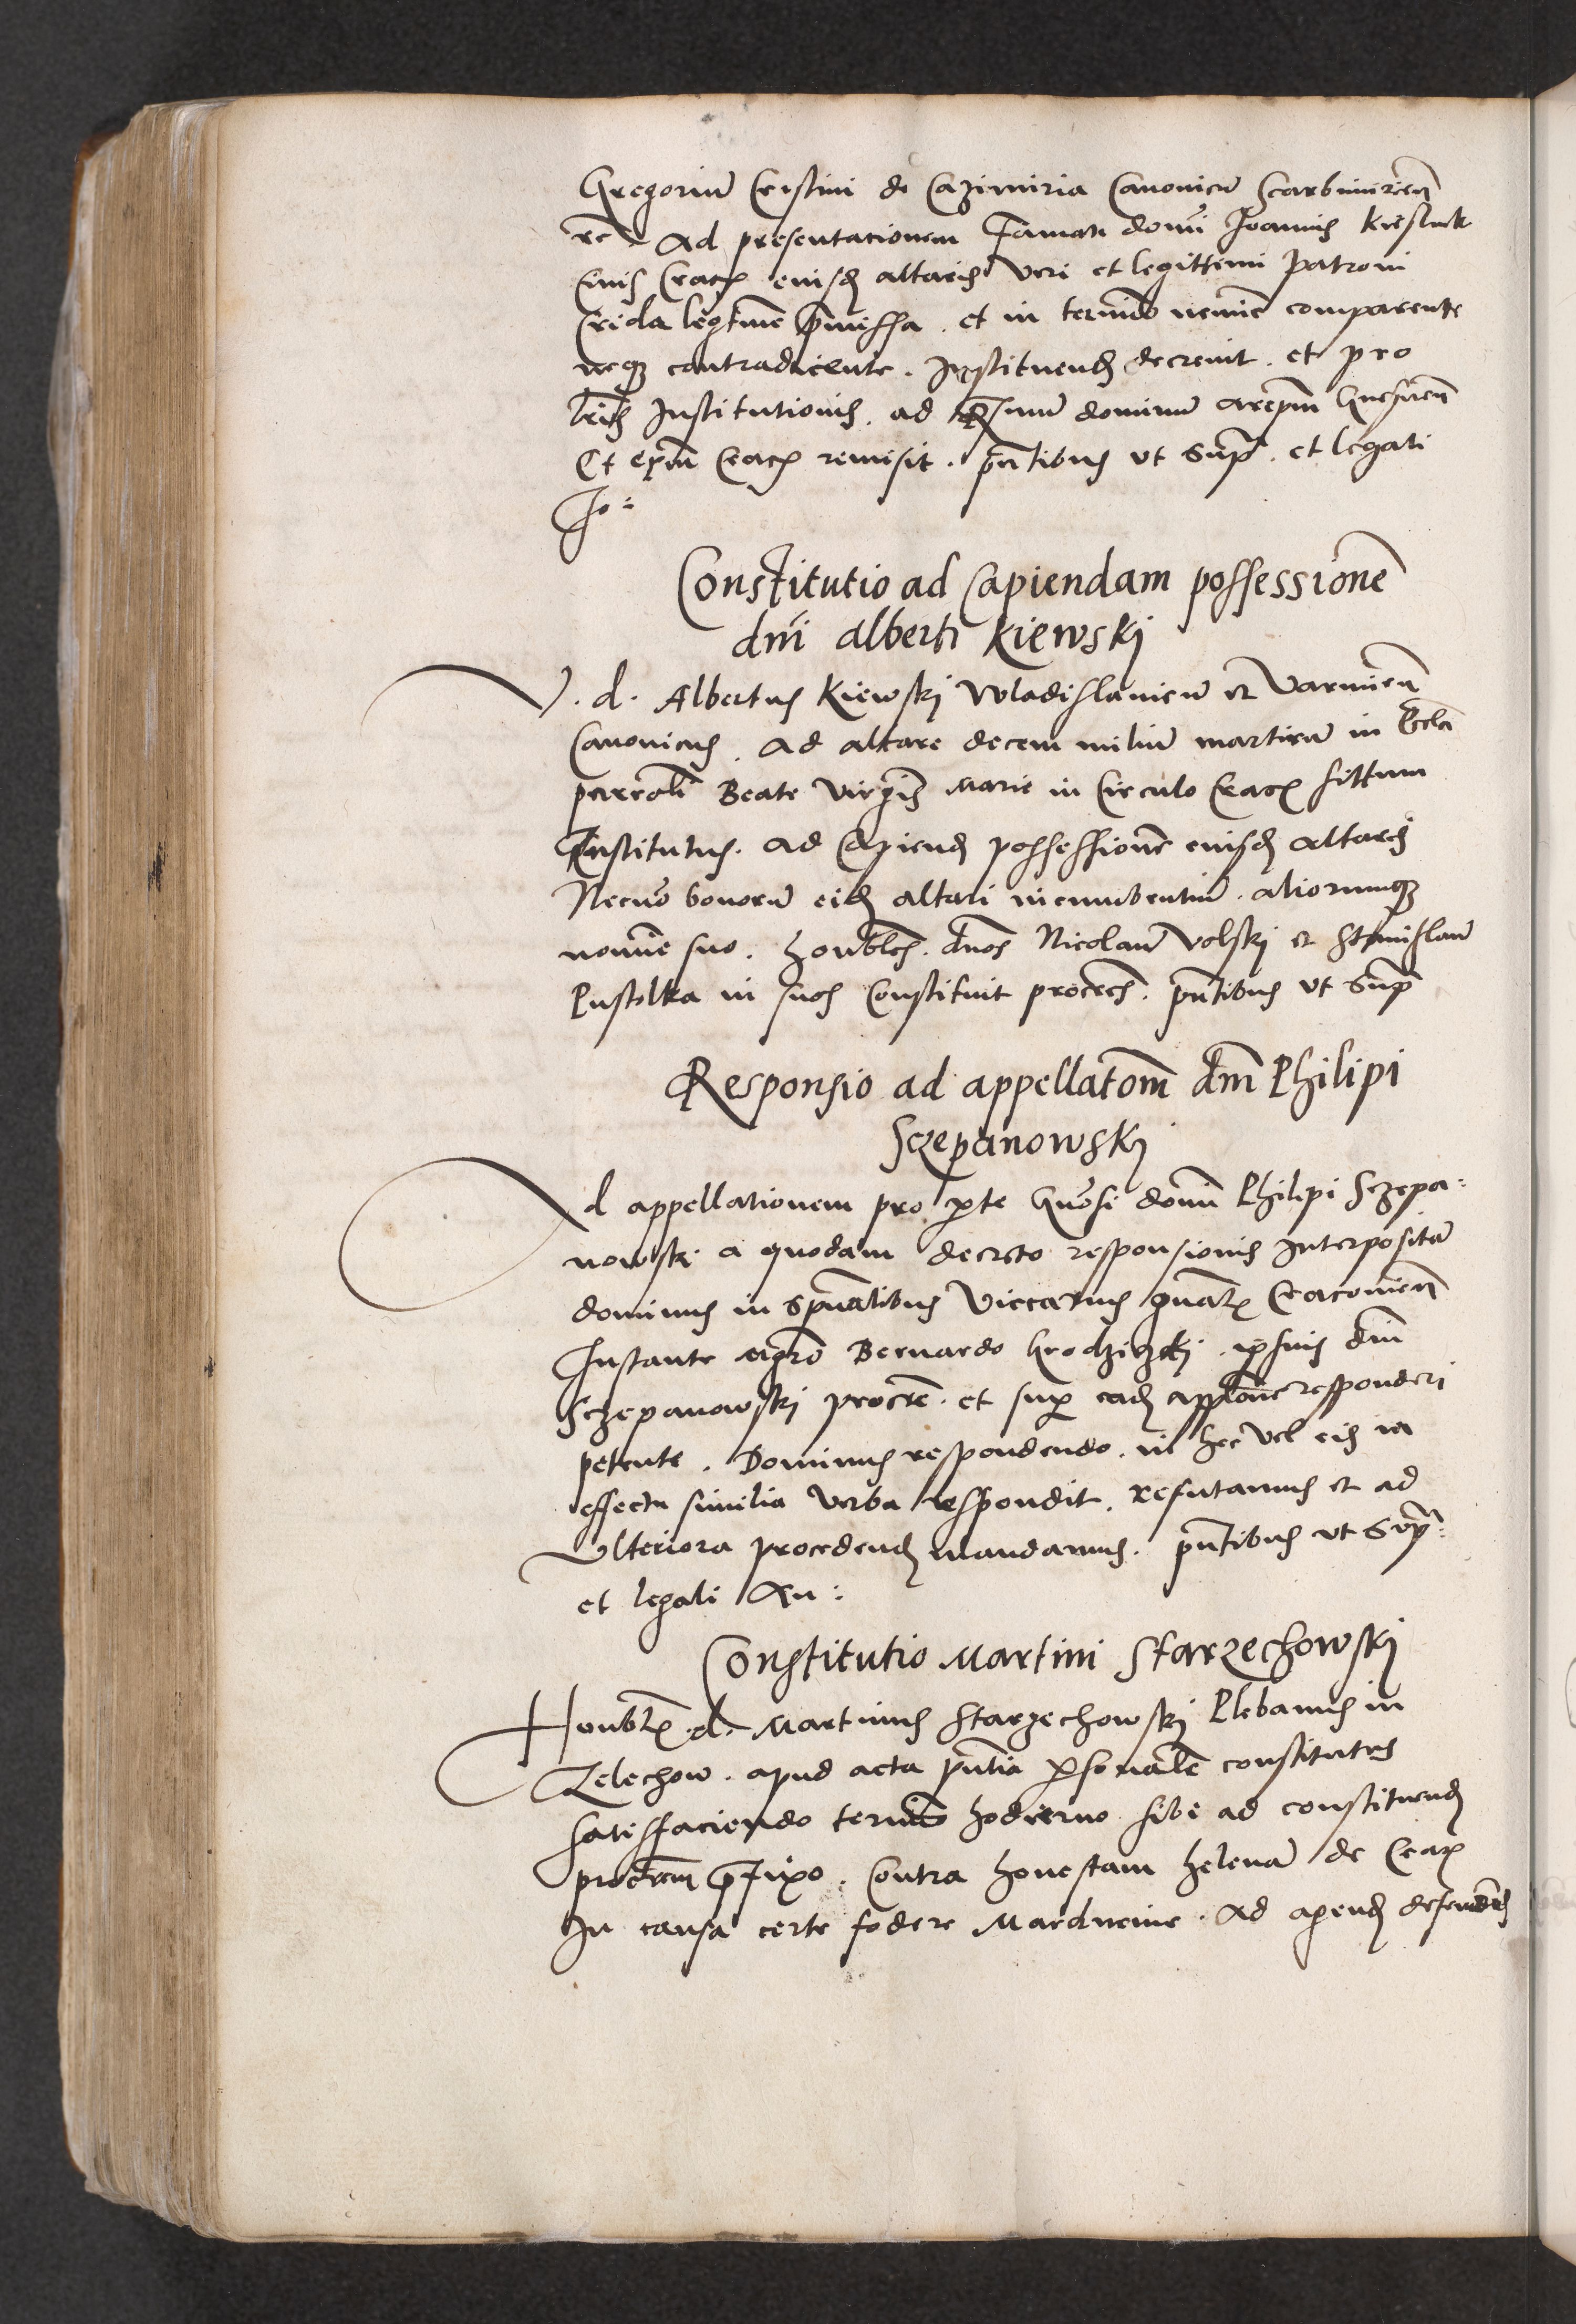 Gregoriū Cristini de Cazimiria Canonicū Scarbimirieñ
rc̄ Ad presentationem Famati domī Joannis
Civis Cracᷓ eiusdē altaris veri et legittimi patroni
Crida legtīme p̄missa . et in termīo nemīe comparente
neqꝫ contradicente . Instituendū decrevit . et pro
lrīs Institutionis . ad dominū arepm̄ Gnesneñ
Et ep̄m Cracᷓ remisit . pn̄tibus ut Sup̄ . et legati
Jo :
Constitutio ad Capiendam possessionē
dn̄i alberti Kiewskj
V . d . Albertus Kiewskj Wladislavieñ et Varmieñ
Canonicus . Ad altare decem miliū martirū in Eccl̄a
parroāli Beate Virgīs Marie in Circulo Cracᷓ sittum
Institutus . Ad Capiendā possessionē eiusdē altaris
Necnō bonorū eidē altari incumbentiū . aliorumqꝫ
nomīe suo . honōbles . dnōs Nicolaū Volskj et Stanislaū
Pustelka in suos Constituit procrēs . pn̄tibus ut Sup̄
Responsio ad appellatōm̄ dn̄i Philipi
Sczepanowskj
Ad appellationem pro ꝑte Gnōsi domī Philipi Sczepa:
nowski a quodam decreto responsionis Interpositā
dominus in Spūalibus Viccarius gnālis Cracovieñ
Instante mgr̄o Bernardo Grodzickj . ipsius dn̄i
Sczepanowskj procrē . et sup̄ eadē appl̄one responderi
petente . Dominus respondendo . in hec vel eis in
effectu similia verba respondit . Refutamus et ad
Ulteriora procedendū mandamus . pn̄tibus ut Sup̄ :
et legali An :
Constitutio Martini Starzechowskj
Honōblis . d . Martinus Starzechowskj Plebanus in
Zelechow . apud acta pn̄tia ꝑsonalr̄ constitutus
Satisfaciendo termīo hodierno sibi ad constituendū
procrēm p̄fixo . Contra honestam helenā de Cracᷓ
In causa certe federe . Ad agendū defendendū